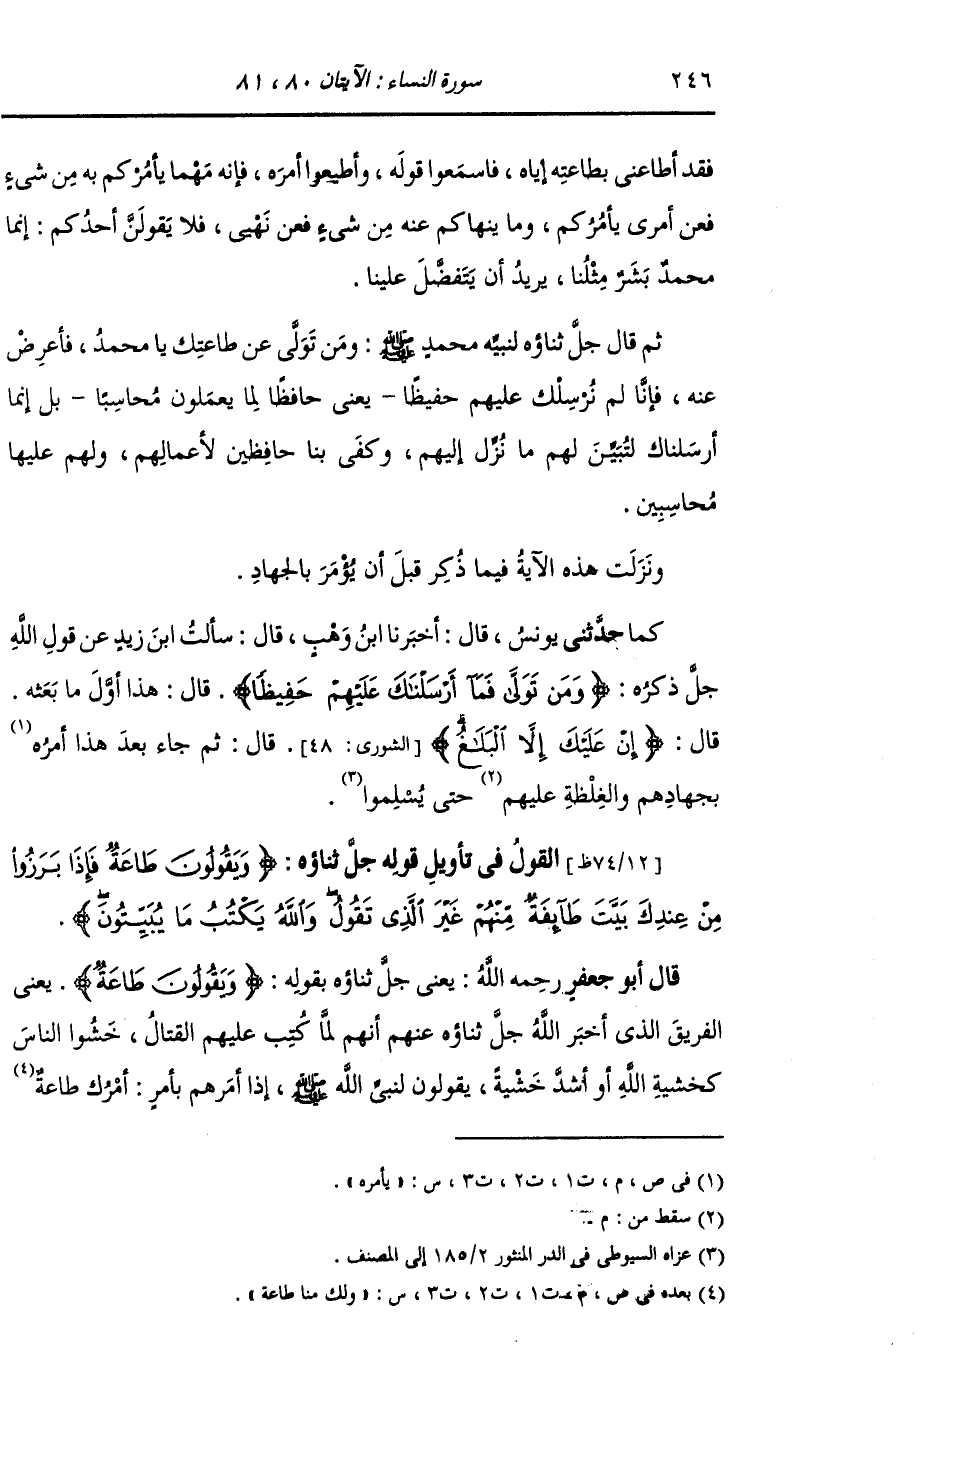 ٢٤٦ سورة النساء : الآيتان ٨٠ ، ٨١
فقد أطاعنى بطاعتِه إياه ، فاسمَعوا قولَه ، وأطيعوا أمرَه ، فإنه مَهْما يأمُرْكم به مِن شىءٍ
فعن أمرى يأمُرُكم ، وما ينهاكم عنه مِن شىءٍ فعن نَهْيى ، فلا يَقولَنَّ أحدُكم : إنما
محمدٌ بَشَرٌ مِثْلُنا ، يريدُ أن يَتَفضَّلَ علينا .
ثم قال جلَّ ثناؤه لنبيِّه محمدٍ ﷺ : ومَن تَوَلَّى عن طاعتِك يا محمدُ ، فأعرِضْ
عنه ، فإنَّا لم نُرْسِلْك عليهم حفيظًا - يعنى حافظًا لِما يعمَلون مُحاسِبًا - بل إنما
أرسَلناك لتُبَيِّنَ لهم ما نُزِّل إليهم ، وكفَى بنا حافِظين لأعمالِهم ، ولهم عليها
مُحاسِبِين .
ونَزَلَت هذه الآيةُ فيما ذُكِر قبلَ أن يُؤْمَرَ بالجهادِ .
كما حدَّثنى يونسُ ، قال : أخبَرنا ابنُ وَهْبٍ ، قال : سألتُ ابنَ زيدٍ عن قولِ اللَّهِ
جلَّ ذكرُه : ﴿ وَمَن تَوَلَّىٰ فَمَآ أَرْسَلْنَٰكَ عَلَيْهِمْ حَفِيظًا ﴾ . قال : هذا أوَّلَ ما بَعَثه .
قال : ﴿ إِنْ عَلَيْكَ إِلَّا ٱلْبَلَٰغُ ﴾ [ الشورى : ٤٨ ] . قال : ثم جاء بعدَ هذا أمرُه(١)
بجهادِهم والغِلْظةِ عليهم(٢) حتى يُسْلِموا(٣) .
[ ٧٤/١٢ظ ] القولُ فى تأويلِ قولِه جلَّ ثناؤه : ﴿ وَيَقُولُونَ طَاعَةٌ فَإِذَا بَرَزُوا۟
مِنْ عِندِكَ بَيَّتَ طَآئِفَةٌ مِّنْهُمْ غَيْرَ ٱلَّذِى تَقُولُ ۖ وَٱللَّهُ يَكْتُبُ مَا يُبَيِّتُونَ ۖ ﴾ .
قال أبو جعفرٍ رحِمه اللَّهُ : يعنى جلَّ ثناؤه بقولِه : ﴿ وَيَقُولُونَ طَاعَةٌ ﴾ . يعنى
الفريقَ الذى أخبَر اللَّهُ جلَّ ثناؤه عنهم أنهم لمَّا كُتِب عليهم القتالُ ، خَشُوا الناسَ
كخشيةِ اللَّهِ أو أشدَّ خَشْيةً ، يقولون لنبىِّ اللَّه ﷺ ، إذا أمَرهم بأمرٍ : أمْرُك طاعةٌ(٤)
(١) فى ص ، م ، ت١ ، ت٢ ، ت٣ ، س : « يأمره » .
(٢) سقط من : م
(٣) عزاه السيوطى فى الدر المنثور ١٨٥/٢ إلى المصنف .
(٤) بعده فى ص ، م ، ت١ ، ت٢ ، ت٣ ، س : « ولك منا طاعة » .